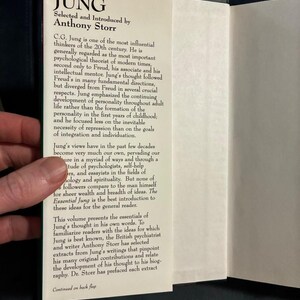 JUNG
Selected and Introduced by
Anthony Storr
C.G. Jung is one of the most influential
thinkers of the 20th century. He is
generally regarded as the most important
psychological theorist of modern times,
second only to Freud, his associate and his
intellectual mentor. Jung's thought followed
Freud's in many fundamental directions,
but diverged from Freud in several crucial
respects. Jung emphasized the continuing
development of personality throughout adult
life rather than the formation of the
personality in the first years of childhood;
and he focused less on the inevitable
necessity of repression than on the goals
of integration and individuation.
Jung's views have in the past few decades
become very much our own, pervading our
in a myriad of ways and through a
of psychologists, self-help
and essayists in the fields of
and spirituality. But none of
followers compares to the man himself
for sheer wealth and breadth of ideas. The
Essential Jung is the best introduction to
these ideas for the general reader.
This volume presents the essentials of
Jung's thought in his own words. To
familiarize readers with the ideas for which
Jung is best known, the British psychiatrist
and writer Anthony Storr has selected
extracts from Jung's writings that pinpoint
his many original contributions and relate
the development of his thought to his biog-
raphy. Dr. Storr has prefaced each extract
Continued on back flap